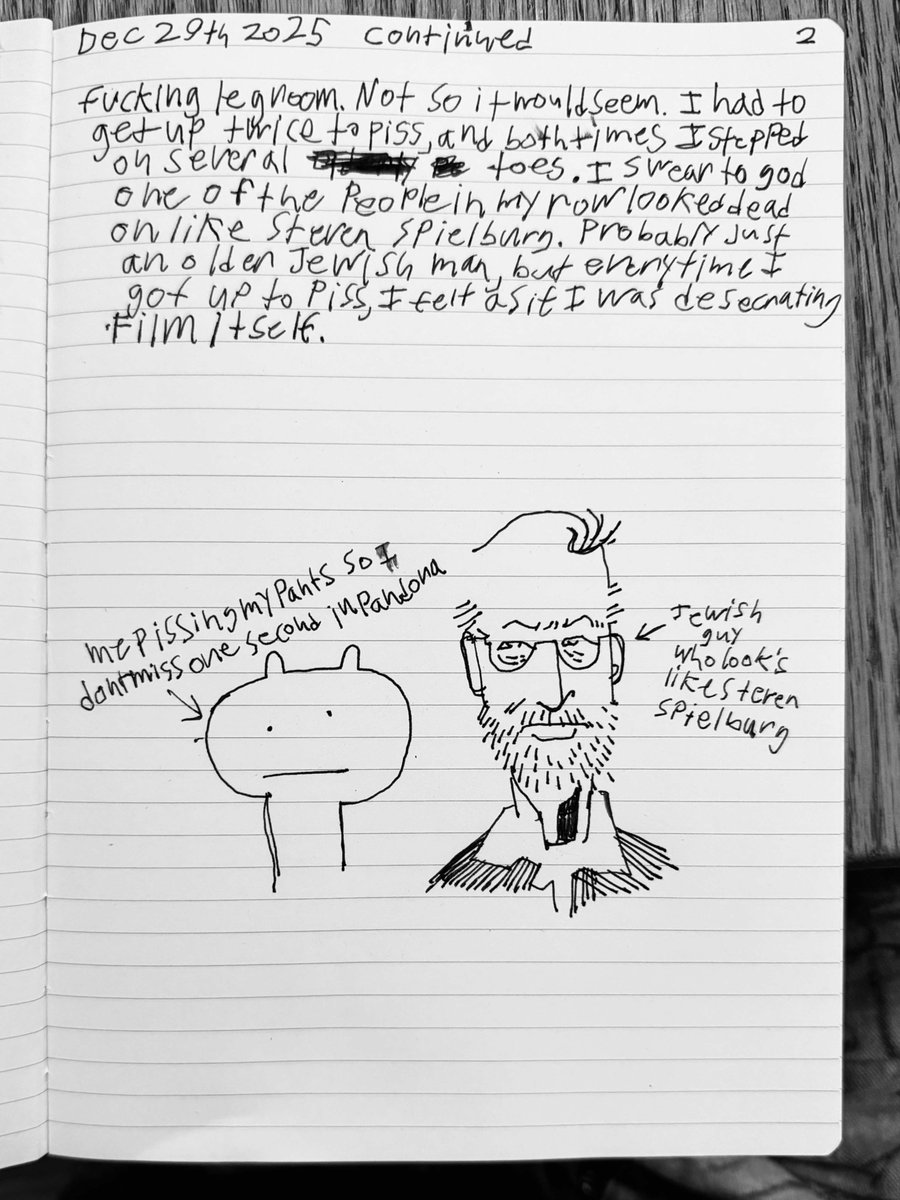 Dec 29th 2025 continued 2
fucking legroom. Not so it would seem. I had to
get up twice to piss, and both times I stepped
on several toes. I swear to god
one of the people in my row looked dead
on like Steven Spielburg. Probably just
an older Jewish man, but everytime I
got up to piss, I felt as if I was desecrating
film itself.
me pissing my pants so I
dont miss one second in Pandora
Jewish
guy
who look's
like Steven
Spielburg